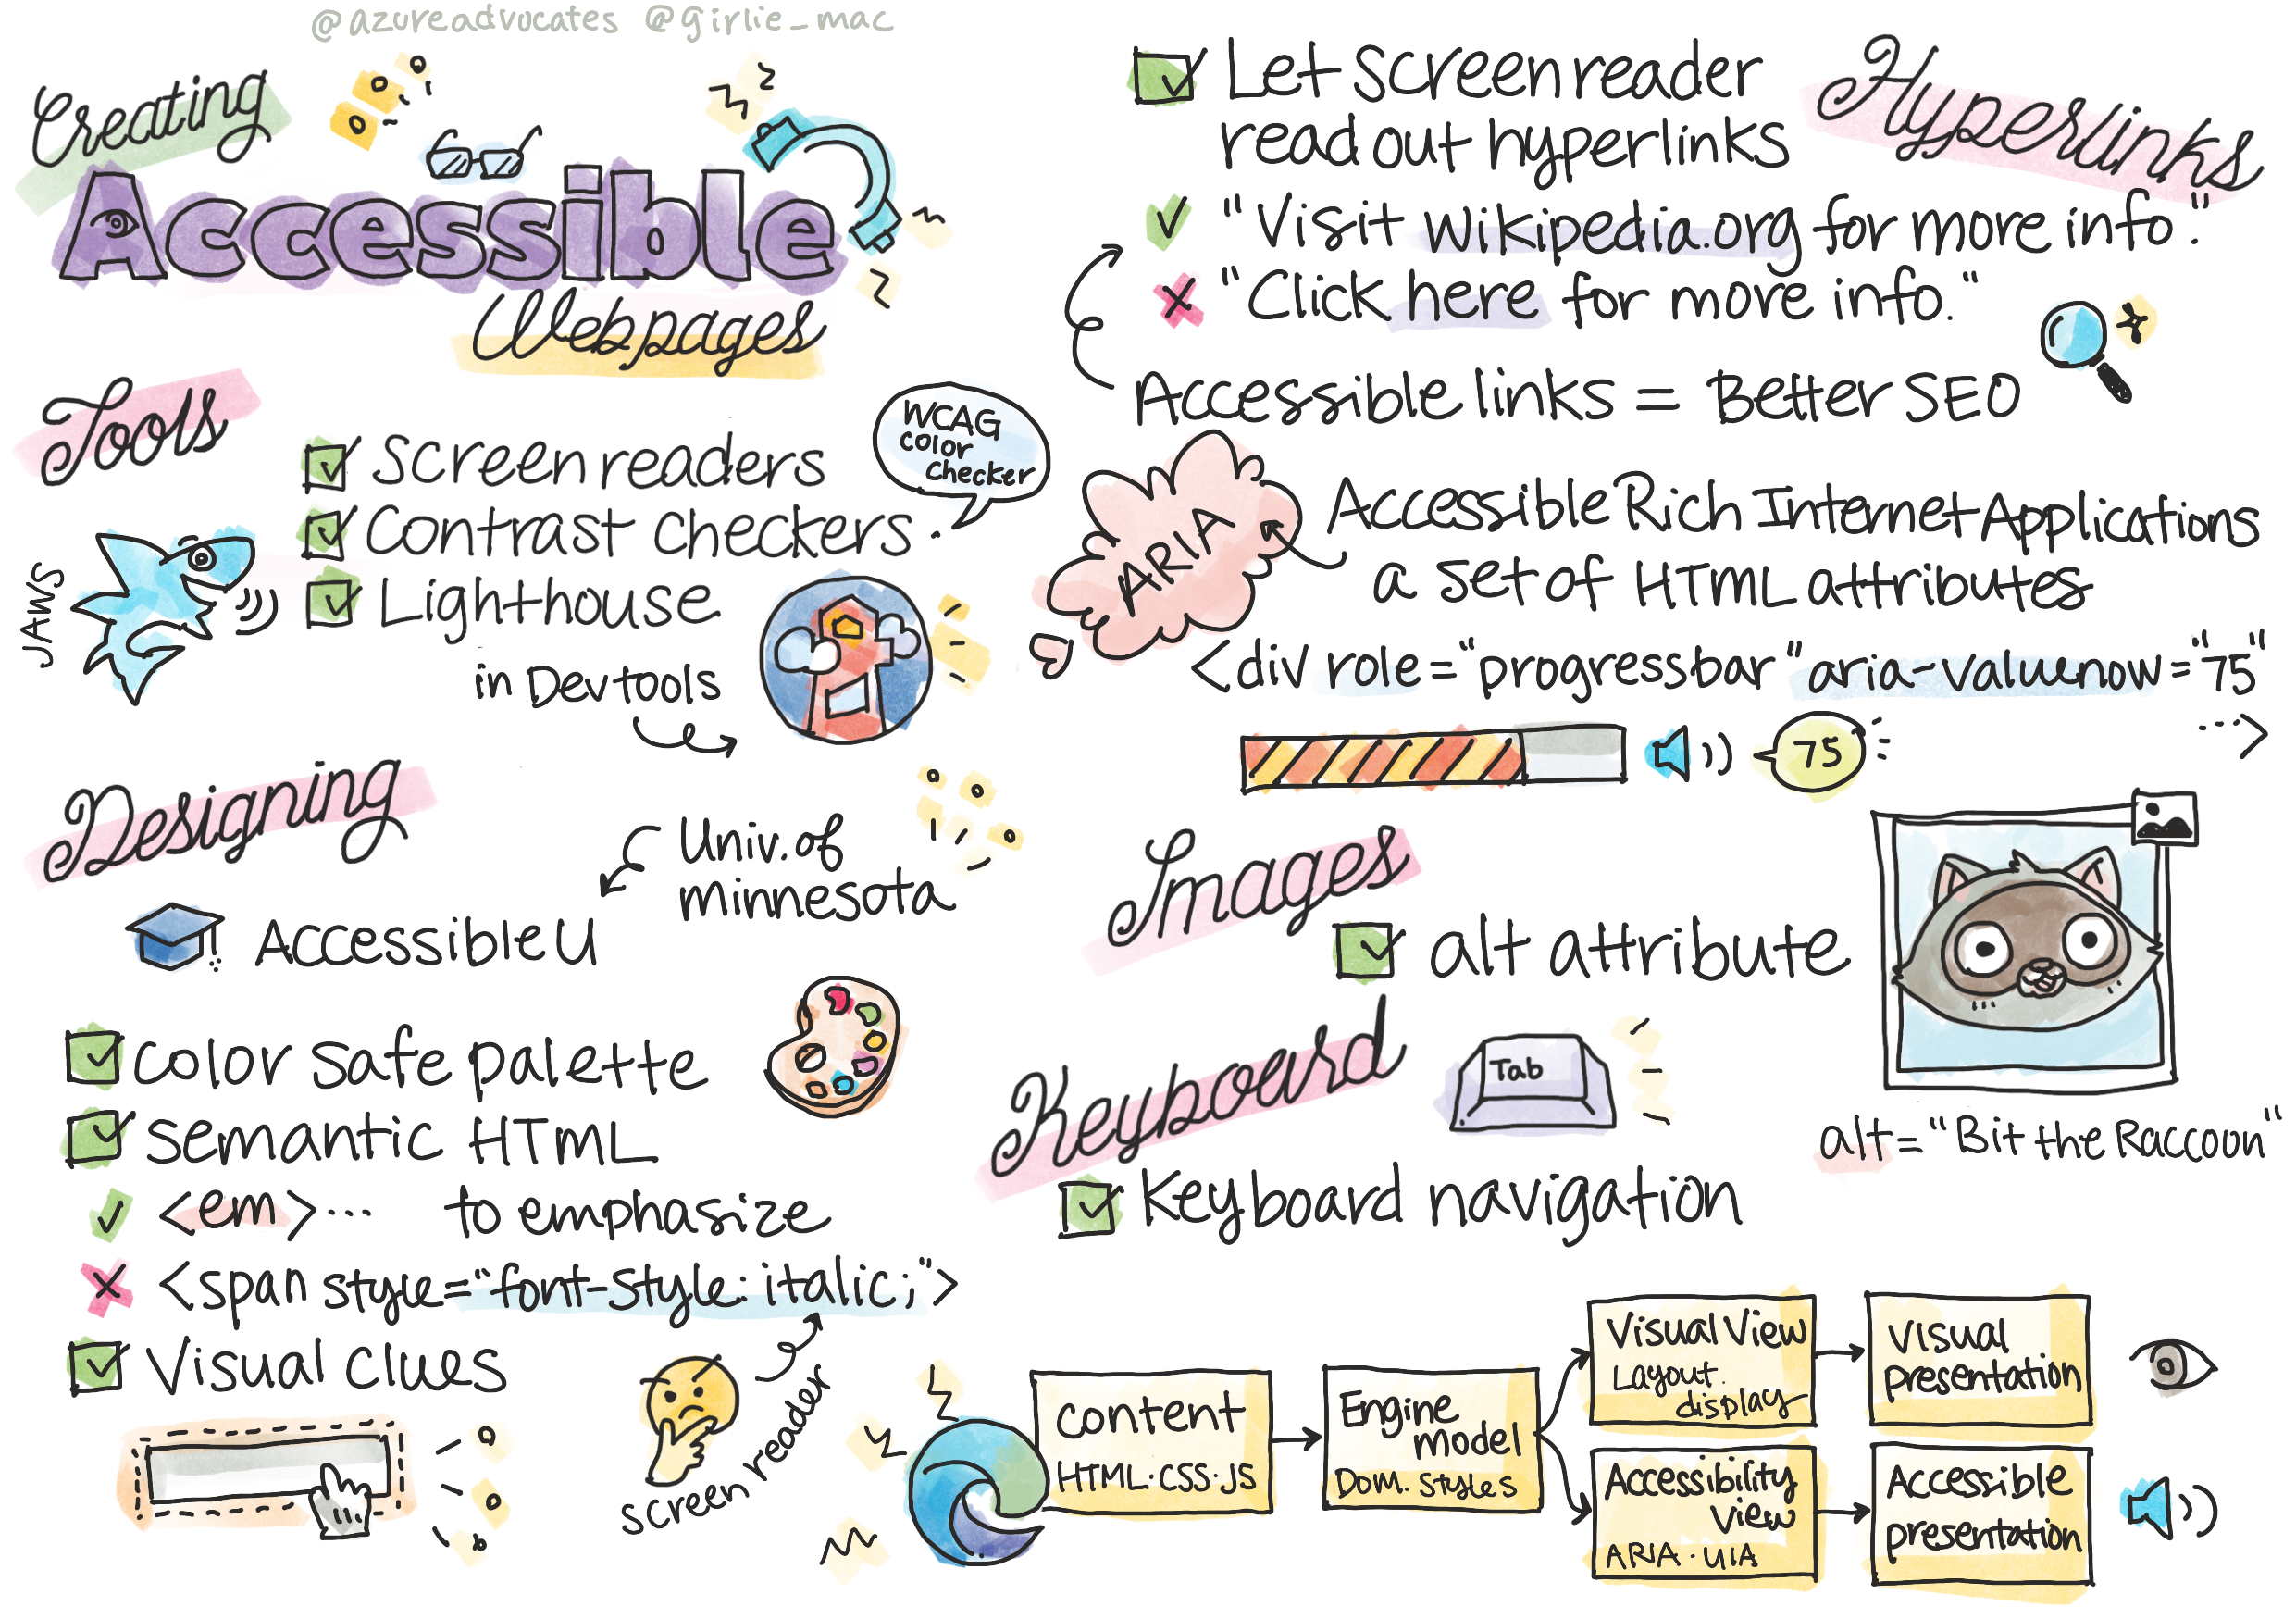 @azureadvocates @girlie_mac
Creating
Accessible
Webpages
Tools
JAWS
Screen readers
Contrast checkers
WCAG
color
checker
Lighthouse
in Devtools
Designing
Univ. of
Minnesota
Accessible U
Color safe palette
Semantic HTML
<em>... to emphasize
<span style="font-style: italic;">
Visual clues
screen reader
Let screen reader
read out hyperlinks
Hyperlinks
"Visit wikipedia.org for more info."
"Click here for more info."
Accessible links = Better SEO
ARIA
Accessible Rich Internet Applications
a set of HTML attributes
<div role="progressbar" aria-valuenow="75"
...>
75
Images
alt attribute
alt="Bit the Raccoon"
Keyboard
Tab
Keyboard navigation
Content
HTML·CSS·JS
Engine
model
DOM. Styles
Visual View
Layout.
display
Visual
presentation
Accessibility
View
ARIA · UIA
Accessible
presentation